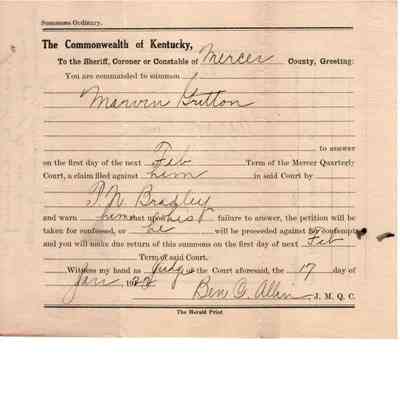 Summons Ordinary.
The Commonwealth of Kentucky,
To the Sheriff, Coroner or Constable of Mercer County, Greeting:
You are commanded to summon
Marvin Gritton
to answer
on the first day of the next Feb Term of the Mercer Quarterly
Court, a claim filed against him in said Court by
P. N. Bradley
and warn him that upon his failure to answer, the petition will be
taken for confessed, or he will be proceeded against for contempt
and you will make due return of this summons on the first day of next Feb
Term of said Court.
Witness my hand as Judge of the Court aforesaid, the 17 day of
Jan, 192
Ben C. Allin, J. M. Q. C.
The Herald Print